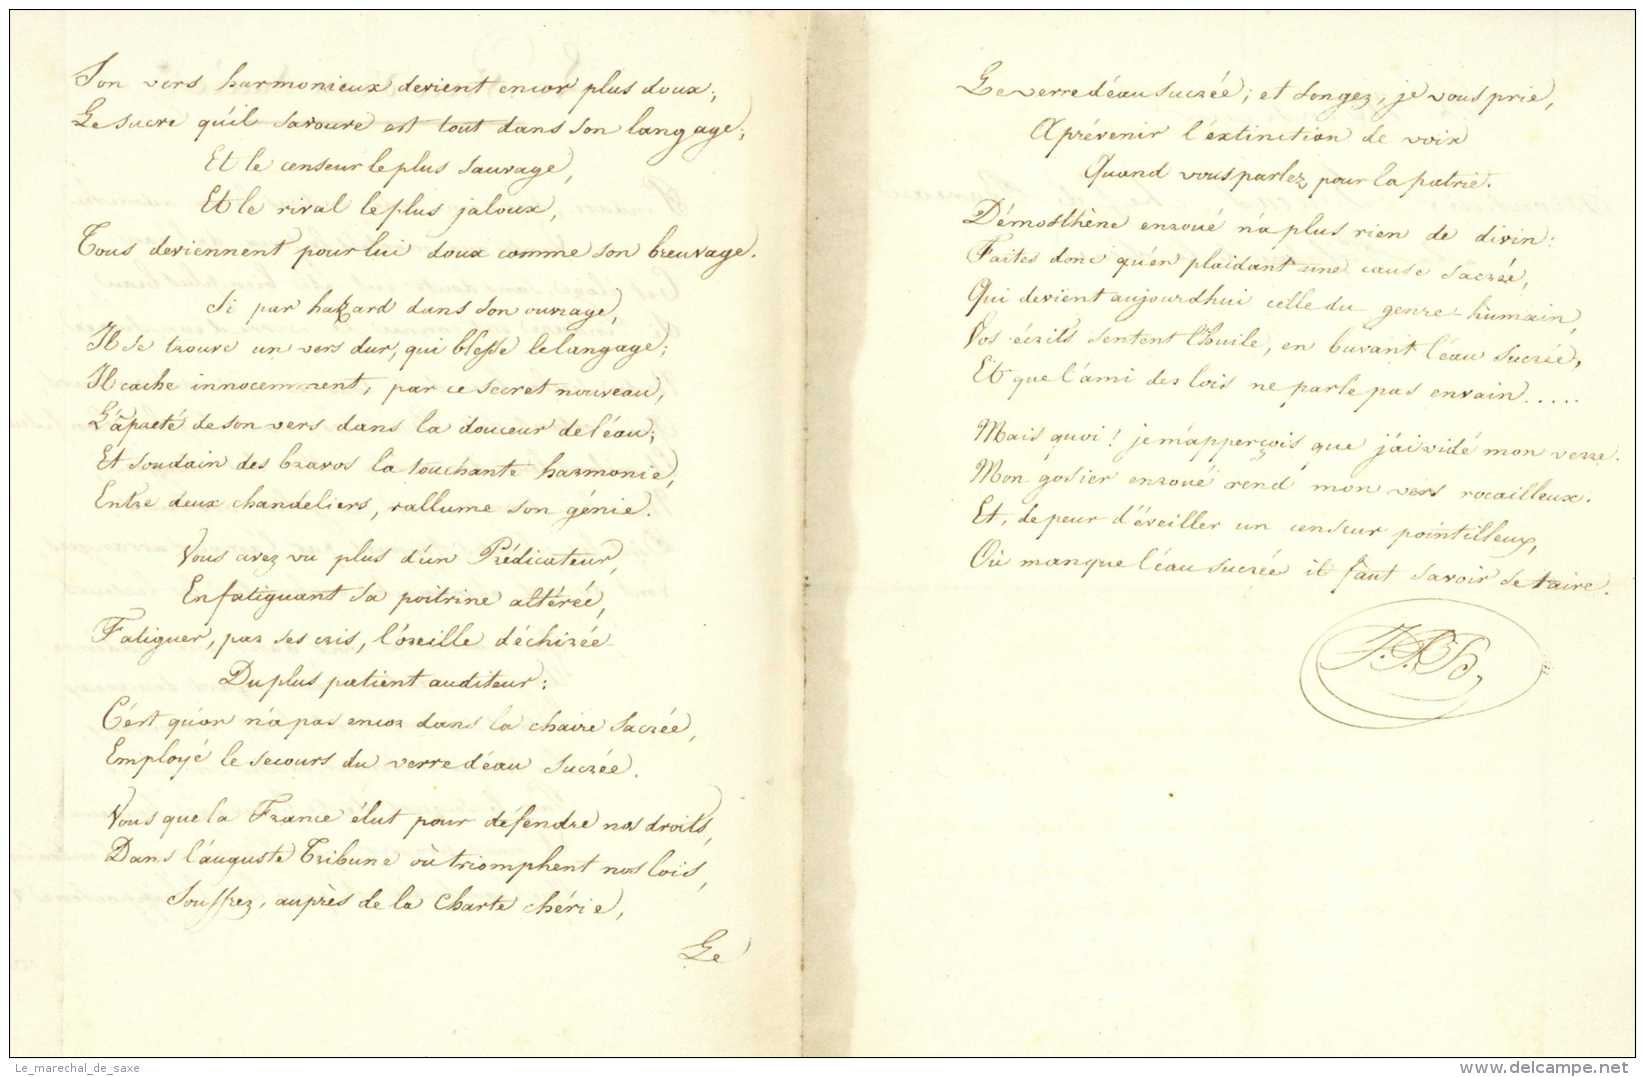 Son vers harmonieux devient encor plus doux;
Le sucre qu'il savoure est tout dans son langage;
Et le censeur le plus sauvage,
Et le rival le plus jaloux,
Tous deviennent pour lui doux comme son breuvage.
Si par hazard dans son ouvrage,
Il se trouve un vers dur, qui blesse le langage;
Il cache innocemment, par ce secret nouveau,
L'âpreté de son vers dans la douceur de l'eau;
Et soudain des bravos la touchante harmonie,
Entre deux chandeliers, rallume son génie.
Vous avez vu plus d'un Prédicateur,
En fatiguant sa poitrine altérée,
Fatiguer, par ses cris, l'oreille déchirée
Du plus patient auditeur:
C'est qu'on n'a pas encor dans la chaire sacrée,
Employé le secours du verre d'eau sucrée.
Vous que la France élut pour défendre nos droits,
Dans l'auguste Tribune où triomphent nos lois,
Souffrez, auprès de la Charte chérie,
Le
Le verre d'eau sucrée; et songez, je vous prie,
A prévenir l'extinction de voix
Quand vous parlez pour la patrie.
Démosthène enroué n'a plus rien de divin:
Faites donc qu'en plaidant une cause sacrée,
Qui devient aujourd'hui celle du genre humain,
Vos écrits sentent l'huile, en buvant l'eau sucrée,
Et que l'ami des lois ne parle pas en vain.....
Mais quoi! je m'apperçois que j'ai vidé mon verre.
Mon gosier enroué rend mon vers rocailleux.
Et, de peur d'éveiller un censeur pointilleux,
Où manque l'eau sucrée il faut savoir se taire.
Le_marechal_de_saxe
www.delcampe.net